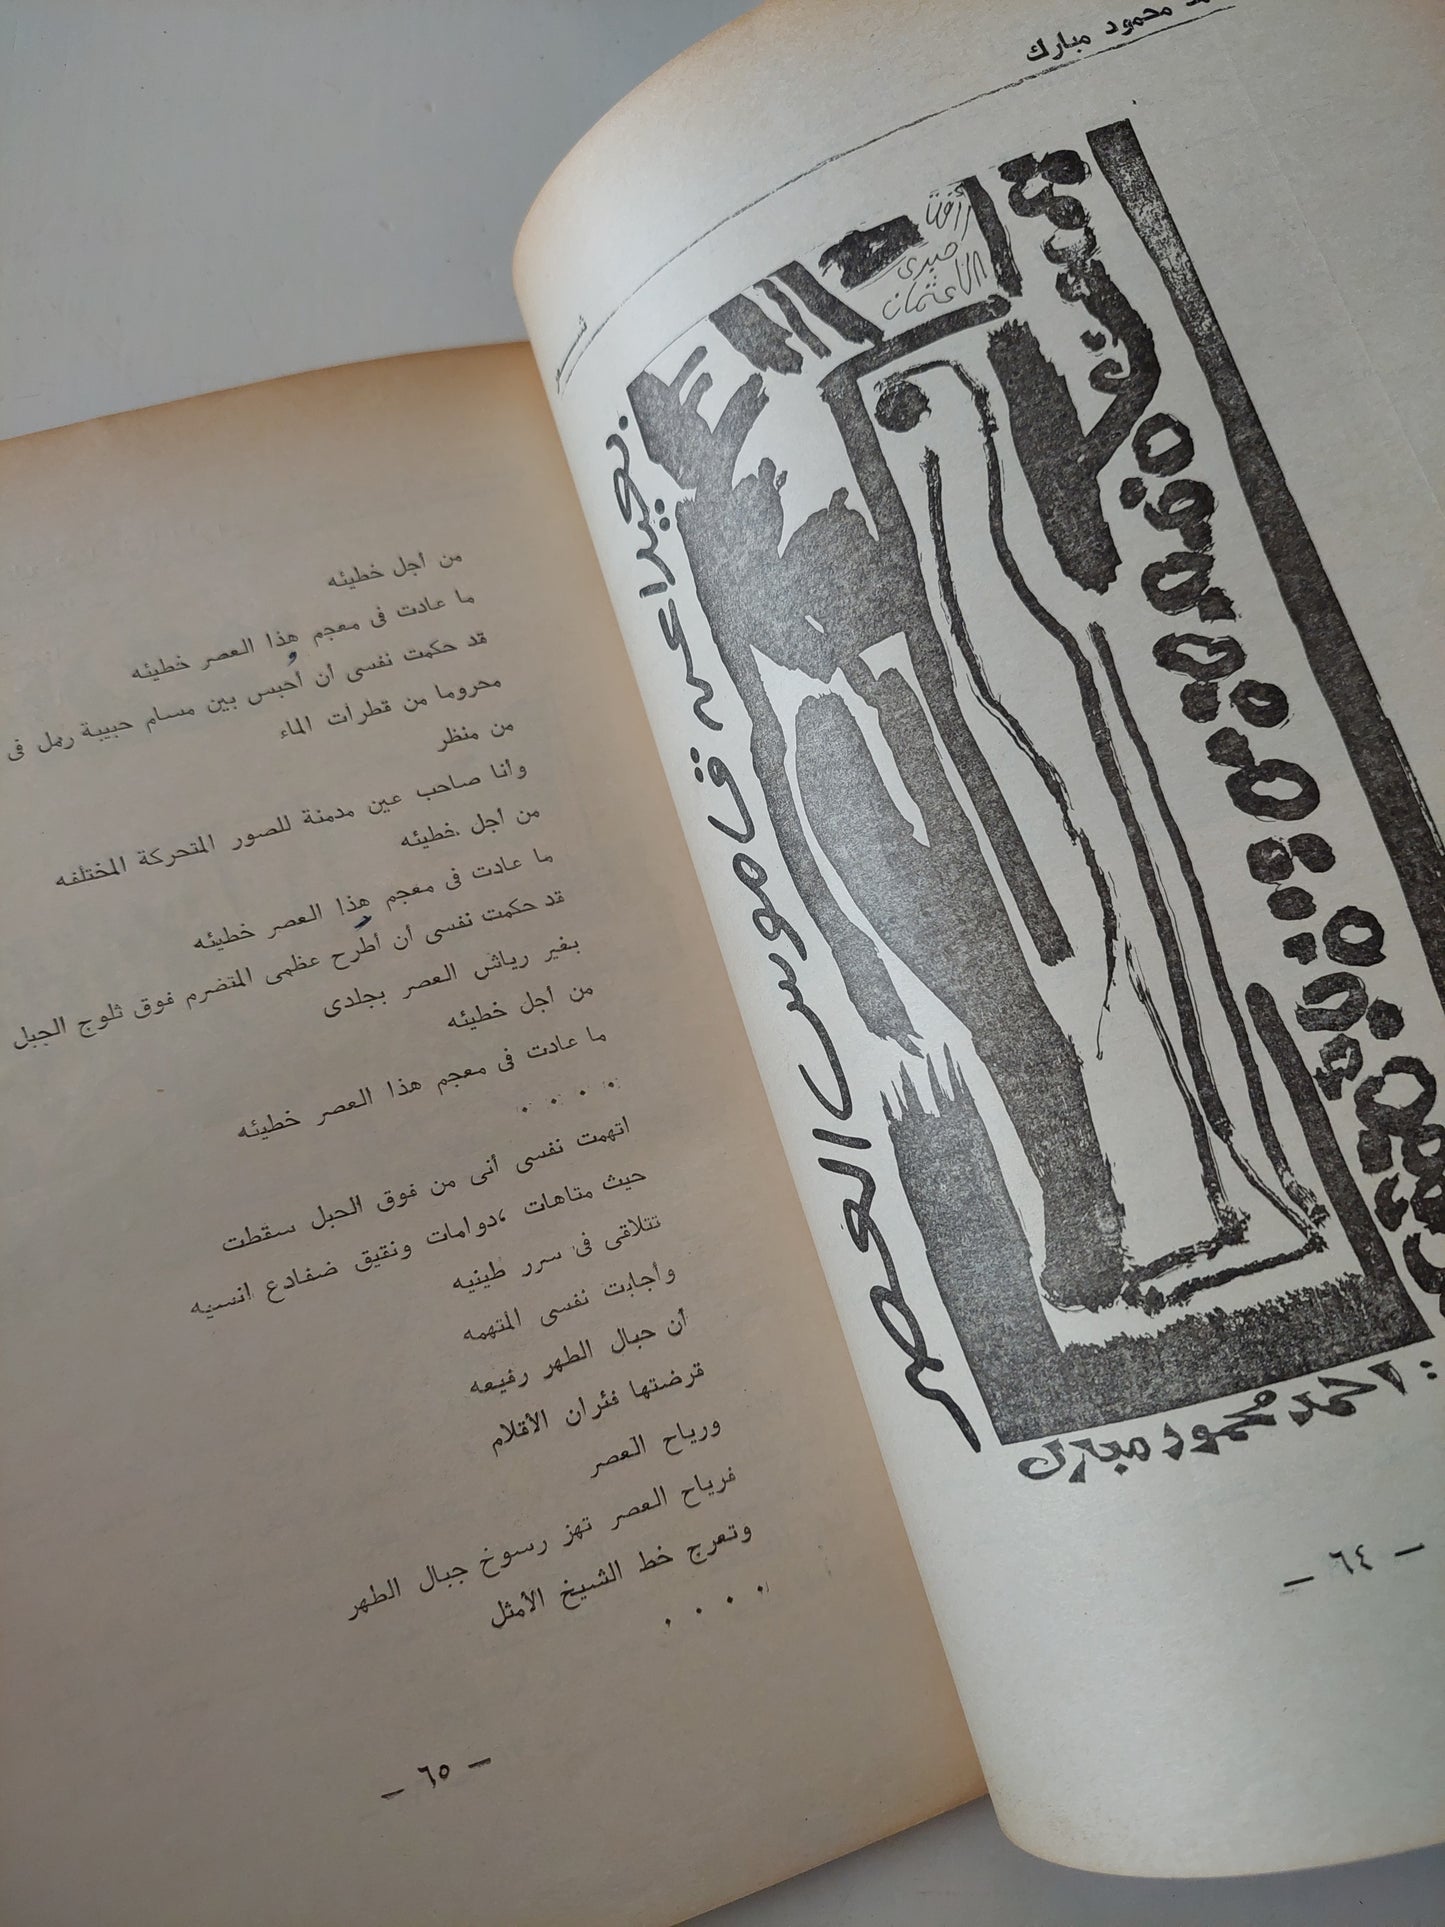 محمود مبارك
شعر
بعيدا عن قاموس العصر
: احمد محمود مبارك
— ٦٤ —
من أجل خطيئه
ما عادت فى معجم هذا العصر خطيئه
قد حكمت نفسى أن أحبس بين مسام حبيبة رمل فى
محروما من قطرات الماء
من منظر
وأنا صاحب عين مدمنة للصور المتحركة المختلفه
من أجل خطيئه
ما عادت فى معجم هذا العصر خطيئه
قد حكمت نفسى أن أطرح عظمى المتضرم فوق ثلوج الجبل
بغير رياش العصر بجلدى
من أجل خطيئه
ما عادت فى معجم هذا العصر خطيئه
. . . .
اتهمت نفسى أنى من فوق الحبل سقطت
حيث متاهات ،دوامات ونقيق ضفادع انسيه
تتلاقى فى سرر طينيه
وأجابت نفسى المتهمه
أن حبال الطهر رفيعه
قرضتها فئران الأقلام
ورياح العصر
فرياح العصر تهز رسوخ جبال الطهر
وتعرج خط الشيخ الأمثل
. . . .
— ٦٥ —